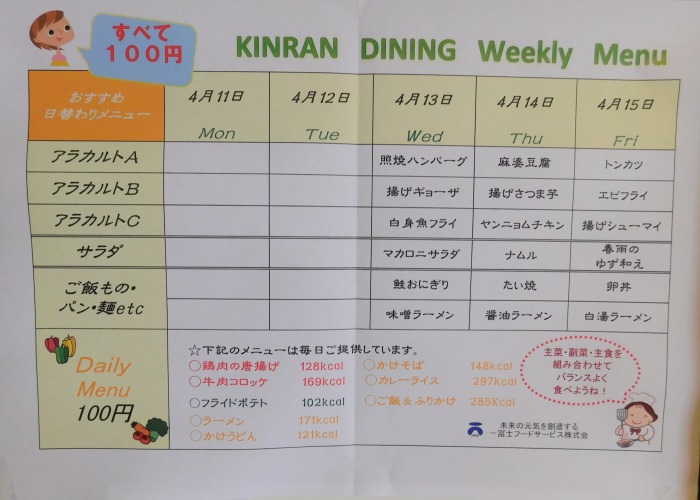 すべて
100円
KINRAN DINING Weekly Menu
おすすめ
日替わりメニュー
4月11日 4月12日 4月13日 4月14日 4月15日
Mon Tue Wed Thu Fri
アラカルトA 照焼ハンバーグ 麻婆豆腐 トンカツ
アラカルトB 揚げギョーザ 揚げさつま芋 エビフライ
アラカルトC 白身魚フライ ヤンニョムチキン 揚げシューマイ
サラダ マカロニサラダ ナムル 春雨の
ゆず和え
ご飯もの・
パン・麺etc
鮭おにぎり たい焼 卵丼
味噌ラーメン 醤油ラーメン 白湯ラーメン
Daily
Menu
100円
☆下記のメニューは毎日ご提供しています。
○鶏肉の唐揚げ 128kcal
○牛肉コロッケ 169kcal
○フライドポテト 102kcal
○ラーメン 171kcal
○かけうどん 121kcal
○かけそば 148kcal
○カレーライス 297kcal
○ご飯&ふりかけ 285Kcal
主菜・副菜・主食を
組み合わせて
バランスよく
食べようね!
未来の元気を創造する
一冨士フードサービス株式会社